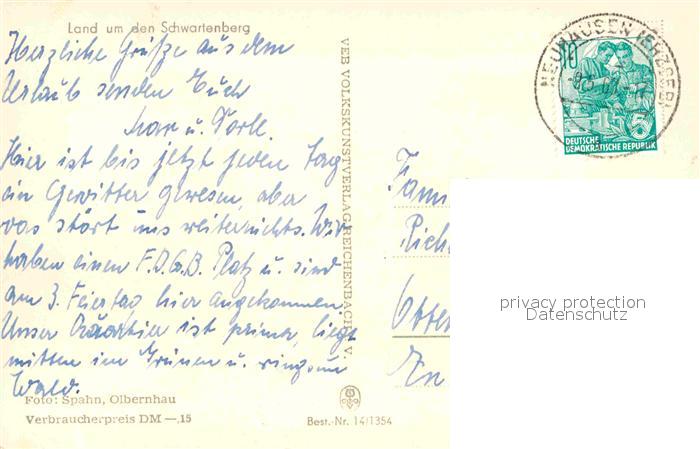 Land um den Schwartenberg
Herzliche Grüße aus dem
Urlaub senden Euch
u.
Hier ist bis jetzt jeden Tag
ein Gewitter gewesen, aber
das stört uns weiter nichts. Wir
haben einen F.D.G.B. Platz u. sind
am 3. Feiertag hier angekommen.
Unser Quartier ist prima, liegt
mitten im Grünen u. ringsum
Wald.
Foto: Spahn, Olbernhau
Verbraucherpreis DM —,15
Best.-Nr. 14/1354
VEB VOLKSKUNSTVERLAG REICHENBACH I. V.
NEUHAUSEN (ERZGEB)
10
5
DEUTSCHE
DEMOKRATISCHE REPUBLIK
Fam
Rich
privacy protection
Datenschutz